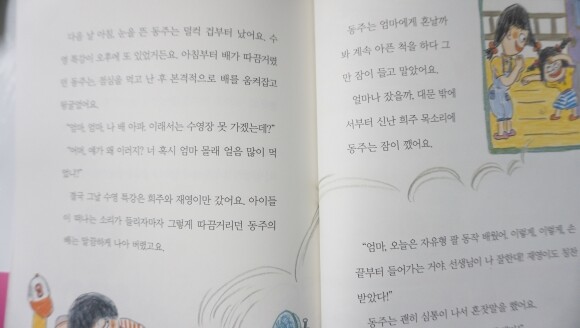 다음 날 아침, 눈을 뜬 동주는 덜컥 겁부터 났어요. 수
영 특강이 오후에 또 있었거든요. 아침부터 배가 따끔거렸
던 동주는, 점심을 먹고 난 후 본격적으로 배를 움켜잡고
뒹굴었어요.
“엄마, 엄마, 나 배 아파. 이래서는 수영장 못 가겠는데?”
“어머, 얘가 왜 이러지? 너 혹시 엄마 몰래 얼음 많이 먹
었니?”
결국 그날 수영 특강은 희주와 재영이만 갔어요. 아이들
이 떠나는 소리가 들리자마자 그렇게 따끔거리던 동주의
배는 말끔하게 나아 버렸고요.
동주는 엄마에게 혼날까
봐 계속 아픈 척을 하다 그
만 잠이 들고 말았어요.
얼마나 잤을까, 대문 밖에
서부터 신난 희주 목소리에
동주는 잠이 깼어요.
“엄마, 오늘은 자유형 팔 동작 배웠어. 이렇게, 이렇게, 손
끝부터 들어가는 거야. 선생님이 나 잘한대! 재영이도 칭찬
받았다!”
동주는 괜히 심통이 나서 혼잣말을 했어요.